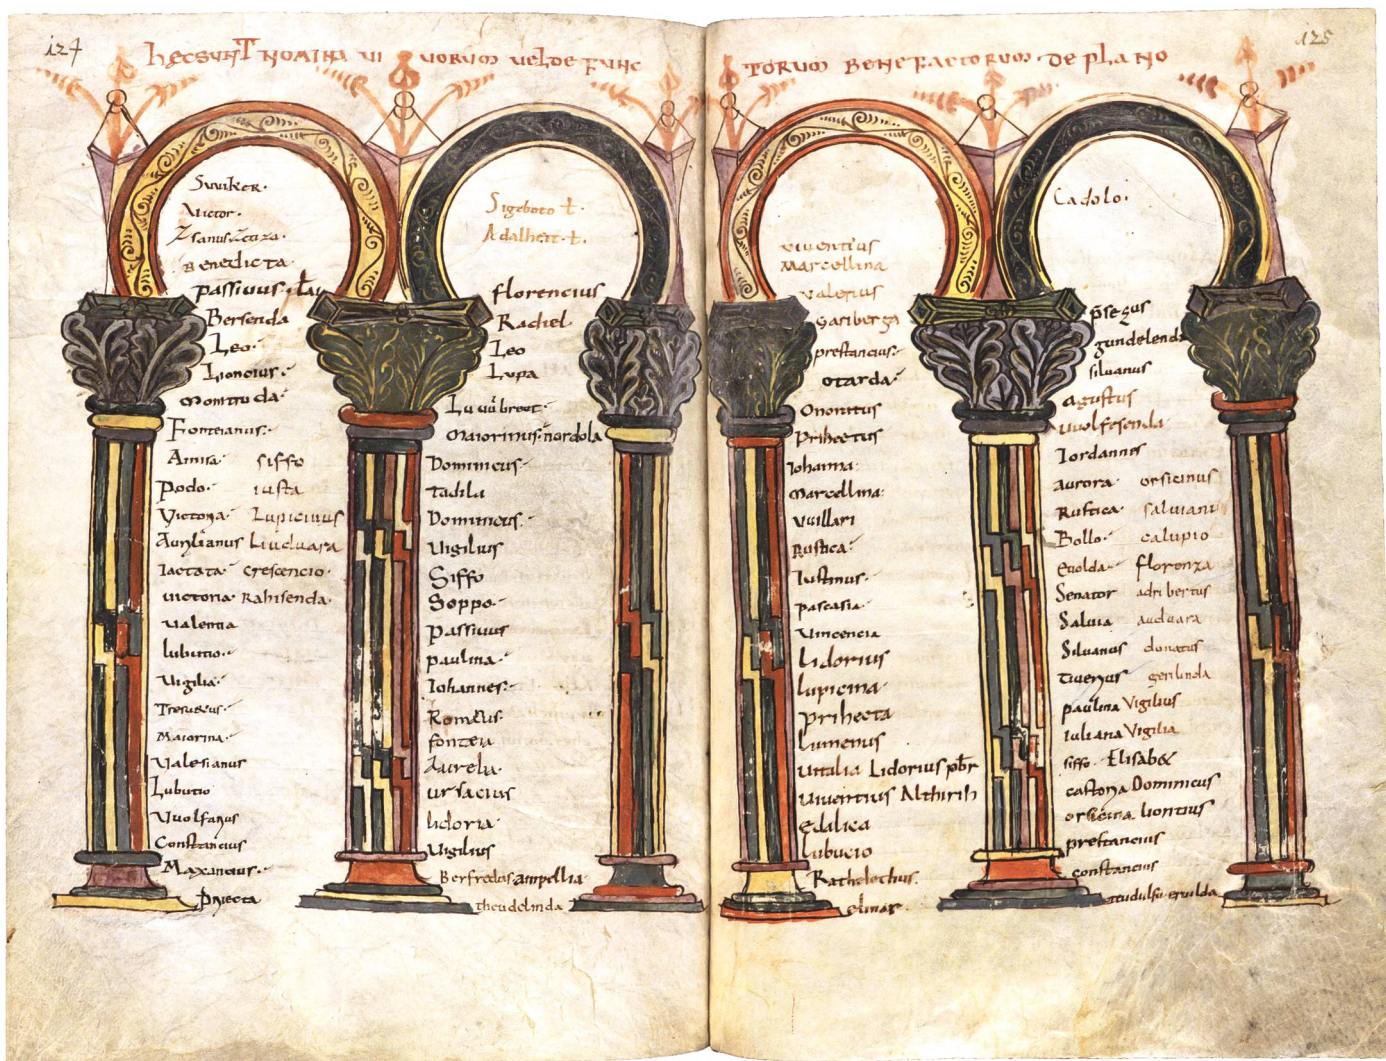 124
125
HĘC SUNT NOMINA VIVORUM VEL DE FUNC
TORUM BENEFACTORUM DE PLANO
Suuiker
Victor
Benedicta
passiuus
Bersenda
Leo
Lioncius
Montruda
Fonteianus
Amisa siffo
Podo iusta
Victoria Lupicinus
Aurilianus Liuduara
Iactata Crescencio
uictoria Rahisenda
ualentia
lubutio
Uigilia
Maiorina
Ualerianus
Lubutio
Constancius
Maxancius
Proiecta
Sigeboto
Adalheit
florencius
Rachel
Leo
Lupa
Maiorinus nordola
Dominicus
Tadila
Dominicus
Uigilius
Siffo
Soppo
Passiuus
paulina
Iohannes
Fonteia
Aurelia
ursacius
lidoria
Uigilius
Berfredus ampellia
theudelinda
uiuentius
Marcellina
Valerius
Gariberga
prestancius
otarda
Onoratus
Priiectus
Iohanna
Marcellina
Vuillari
Rustica
Iustinus
pascasia
Vincencia
Lidorius
lupicina
Priiecta
Lumenus
Uitalia Lidorius pbr
Uiuentius Althirih
edalica
Lubucio
Rathelochus
olmar
Cadolo
gundelenda
siluanus
Agustus
Uuolfesenda
Iordannis
aurora orsicinus
Rustica saluianus
Bollo calupio
Euolda florenza
Senator adribertus
Saluia auduara
Siluanus donatus
gerlinda
paulina Vigilius
Iuliana Vigilia
siffo Elisab&
castoria Dominicus
orsicina liontius
prestancius
constancius